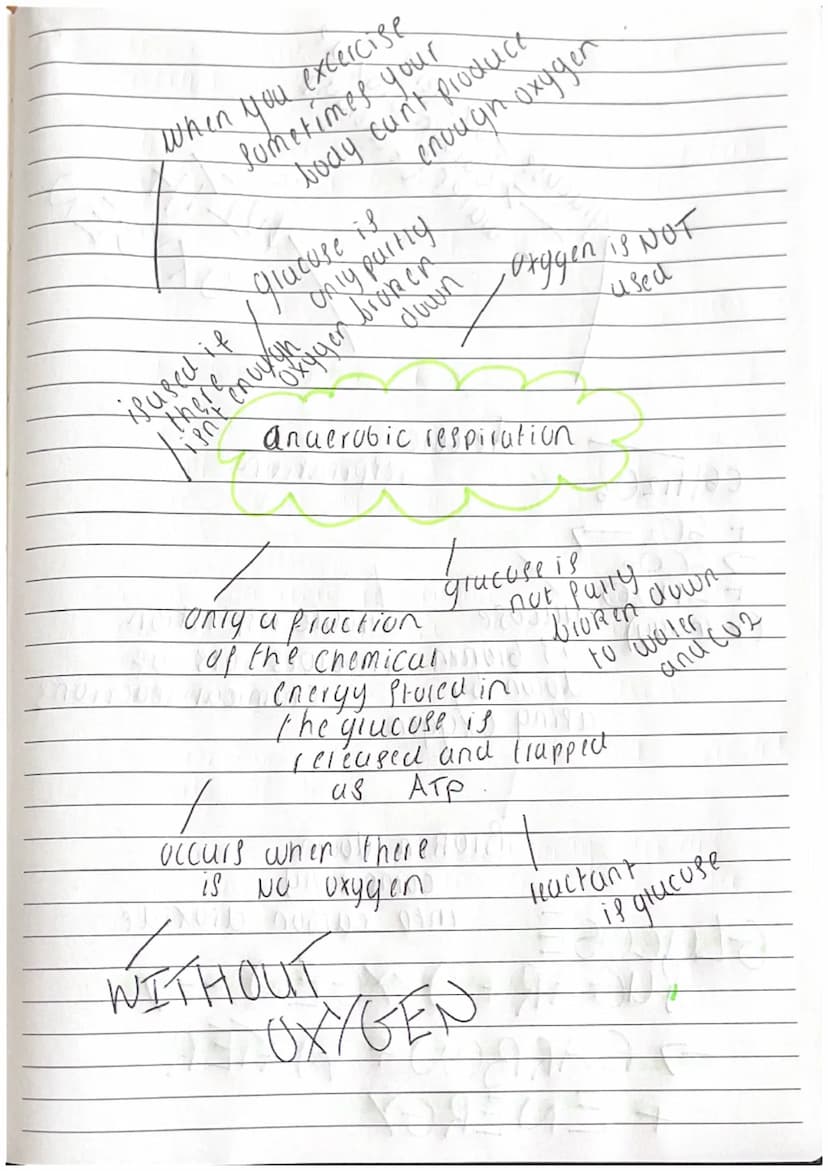 When you excercise
sometimes your
body can't produce
enough oxygen
glucose is
only partly
broken
down
oxygen is NOT
used
is used if
there
isn't enough
oxygen
anaerobic respiration
glucose is
not fully
broken down
to water
and CO2
only a fraction
of the chemical
energy stored in
the glucose is
released and trapped
as ATP.
occurs when there
is NO oxygen
reactant
is glucose
WITHOUT
OXYGEN